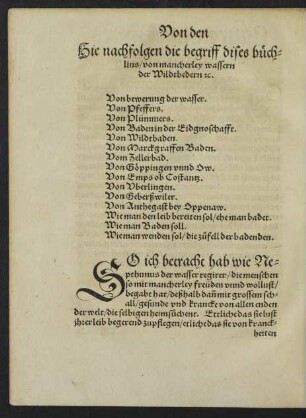 Von den
Hie nachfolgen die begriff dises büch-
lins/ von mancherley wassern
der Wildtbedern ꝛc.
Von bewerung der wasser.
Von Pfeffers.
Von Plümmers.
Von Baden in der Eidgnoschafft.
Von Wildtbaden.
Von Marckgraffen Baden.
Vom Zellerbad.
Von Göppingen vnnd Ow.
Von Emps ob Costantz.
Von Vberlingen.
Von Geberßwiler.
Von Anthegast bey Oppenaw.
Wie man den leib bereiten sol/ ehe man badet.
Wie man Baden soll.
Wie man wenden sol/ die züfell der badenden.
SO ich betracht hab wie Ne-
pthunus der wasser regirer/ die menschen
so mit mancherley freüden vnnd wollust/
begabt hat/ deßhalb dañ mit grossem sch-
all/ gesunde vnd krancke von allen enden
der welt/ die selbigen heimsüchent. Ettliche das sie lust
ihr er leib begerend zupflegen/ etliche das sie von kranck-
heiten